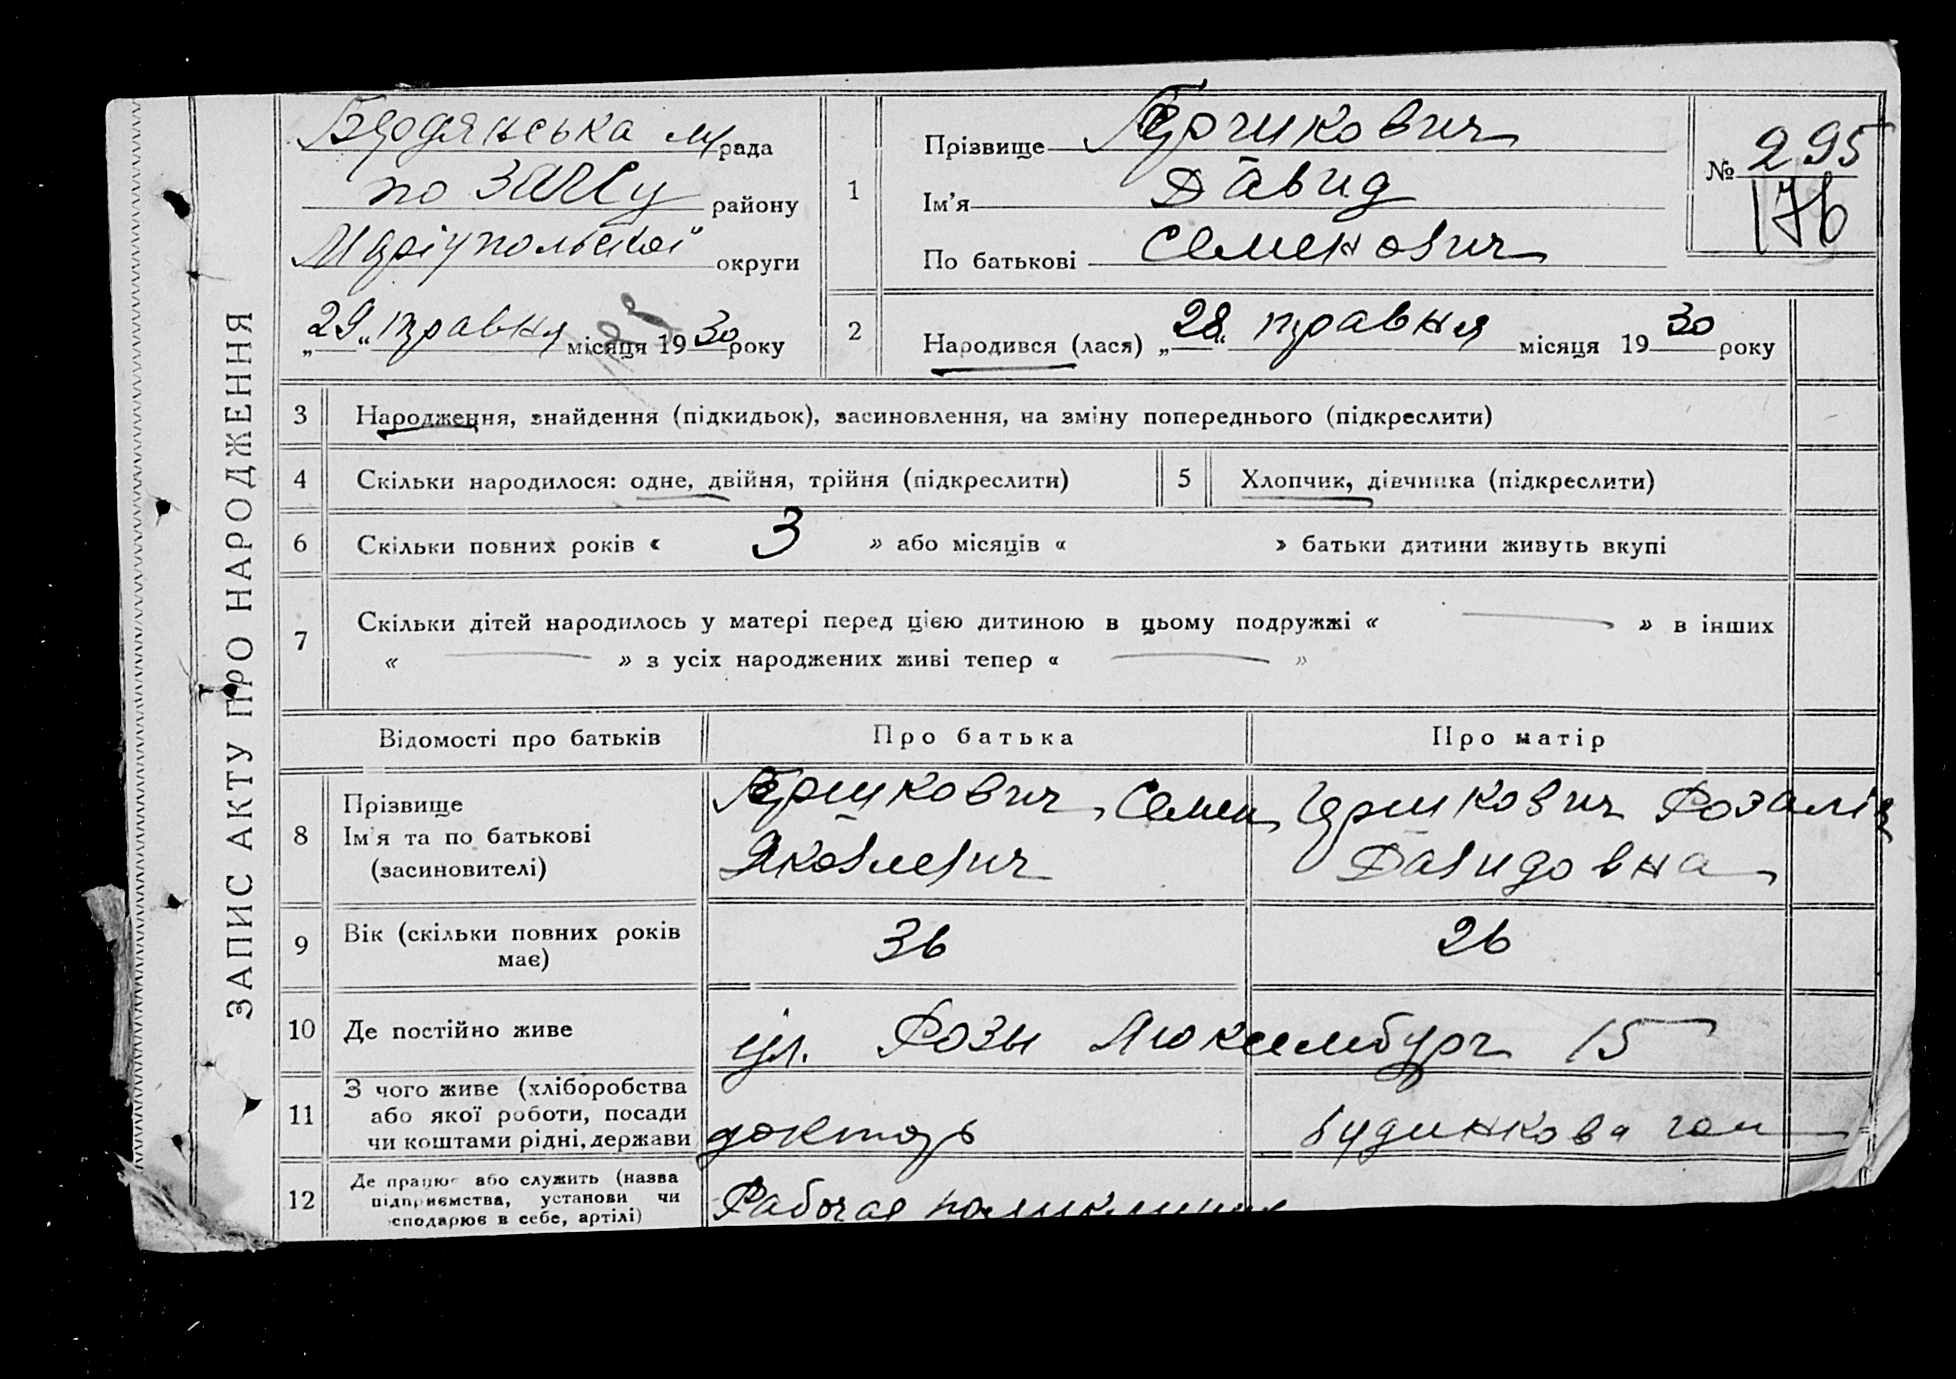 ЗАПИС АКТУ ПРО НАРОДЖЕННЯ
Бердянська м/рада
по ЗАГСу району
Маріупольської округи
„29“ травня місяця 1930 року
1
Прізвище Гершкович
Ім'я Давид
По батькові Семенович
№ 295
176
2
Народився (лася) „28“ травня місяця 1930 року
3 Народження, знайдення (підкидьок), засиновлення, на зміну попереднього (підкреслити)
4 Скільки народилося: одне, двійня, трійня (підкреслити)
5 Хлопчик, дівчинка (підкреслити)
6 Скільки повних років « 3 » або місяців « » батьки дитини живуть вкупі
7 Скільки дітей народилось у матері перед цією дитиною в цьому подружжі « — » в інших
« — » з усіх народжених живі тепер « — »
Відомості про батьків Про батька Про матір
8 Прізвище
Ім'я та по батькові
(засиновителі)
Гершкович Семен
Яковлевич
Гершкович Розалія
Давидовна
9 Вік (скільки повних років
має)
36 26
10 Де постійно живе ул. Розы Люксембург 15
11 З чого живе (хліборобства
або якої роботи, посади
чи коштами рідні, держави
доктор
будинкова гос
12 Де працює або служить (назва
підприємства, установи чи
сподарює в себе, артілі)
Рабочая поликлиника